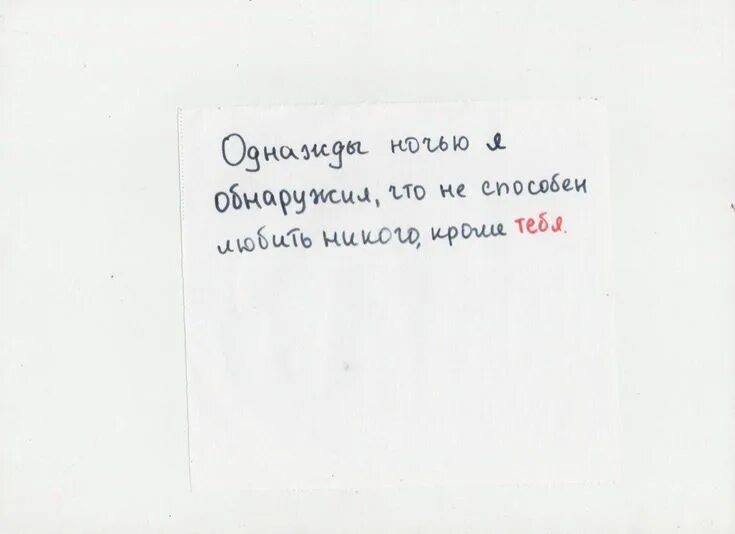 Однажды ночью я
обнаружил, что не способен
любить никого, кроме тебя.